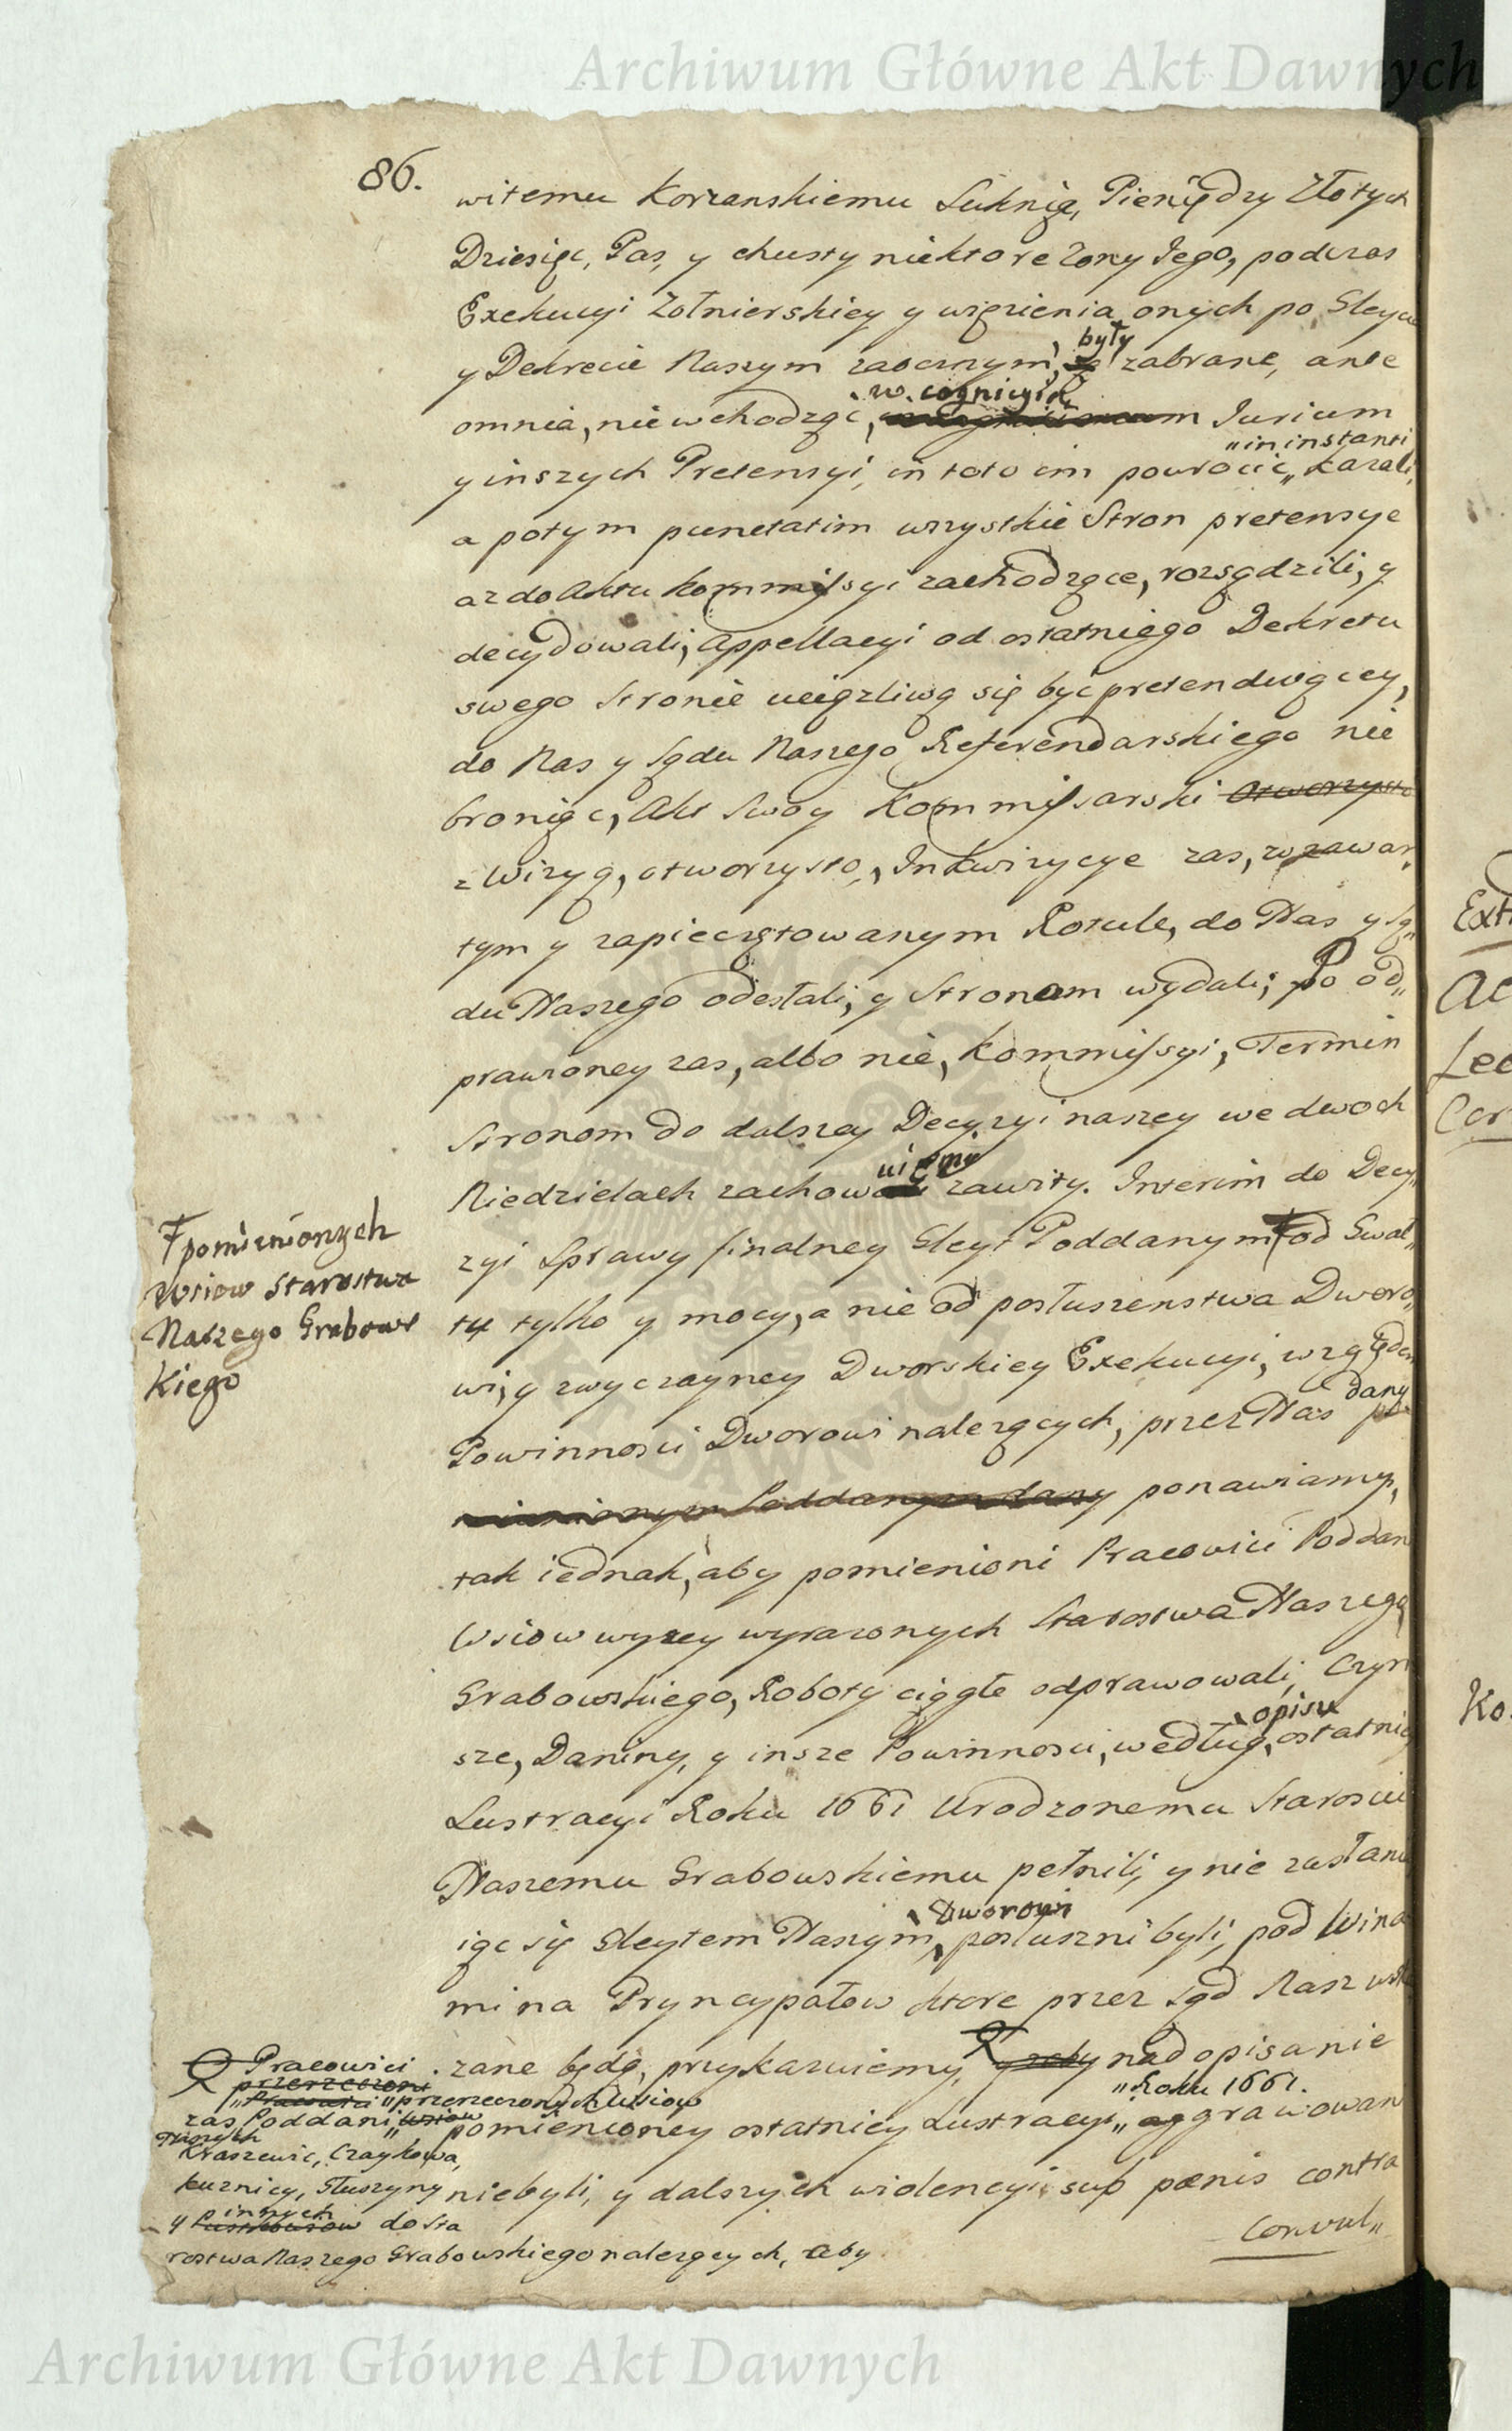 Archiwum Główne Akt Dawnych
86.
witemu Korzanskiemu Suknię, Pieniędzy Złotych
Dziesięc, Pas, y chusty niektore Zony Jego, podczas
Exekucyi Zołnierskiey y więzienia onych po Gleycie
były
y Dekrecie Naszym zaocznym, zabrane, ante
w cognicyią
omnia, nie wchodząc, Jurium
"in instanti
y inszych Pretensyi, in toto im powrocić" kazali,
a potym punctatim wszystkie Stron pretensye
az do Aktu Kommissyi zachodzące, rozsądzili, y
decydowali, Appellacyi od ostatniego Dekretu
swego Stronie uciązliwą się byc pretenduiącey,
do Nas y Sądu Naszego Referendarskiego nie
broniąc, Akt Swoy Kommissarski otworzysto
z Wizyą, otworzysto, Inkwizycye zas, w zawar,
tym y zapieczętowanym Rotule, do Nas y Są,,
du Naszego odesłali, y Stronom wydali; Po od,,
prawioney zas, albo nie, Kommissyi, Termin
Stronom do dalszey Decyzyi naszey we dwoch
uiemy
Niedzielach zachow zawity. Interim do Decy,,
zyi Sprawy finalney Gleyt Poddanym od Gwał,,
Ŧ pomienionych
Wsiow Starostwa
Naszego Grabows
kiego
tu tylko y mocy, a nie od posłuszenstwa Dworo,,
wi, y zwyczayney Dworskiey Exekucyi, względem
dany
Powinnosci Dworowi nalezących, przez Nas po
mienionym Poddanym dany ponawiamy,
tak iednak, aby pomienioni Pracowici Poddani
Wsiow wyzey wyrazonych Starostwa Naszego
Grabowskiego, Roboty ciągłe odprawowali, Czyn
opisu
sze, Daniny, y insze Powinnosci, według, ostatniey
Lustracyi Roku 1661 Urodzonemu Staroscie
Naszemu Grabowskiemu pełnili, y nie zasłania
Dworowi
iąc się Gleytem Naszym, posłuszni byli, pod Wina
mi na Pryncypałow ktore przez Sąd Nasz wska
zane będą, przykazuiemy, zeby nad opisanie
"Roku 1661.
pomienioney ostatniey Lustracyi" aggrawowani
niebyli, y dalszych widencyi sub pœnis contra
Convul,,
Pracowici
przerzeczoni
"Pracowici "przerzeczonych Wsiow
zas Poddani" Wsiow
Kraszewic, Czaykowa,
Kuznicy, Głuszyny
y innych do Sta
rostwa Naszego Grabowskiego nalezących, aby
Archiwum Główne Akt Dawnych